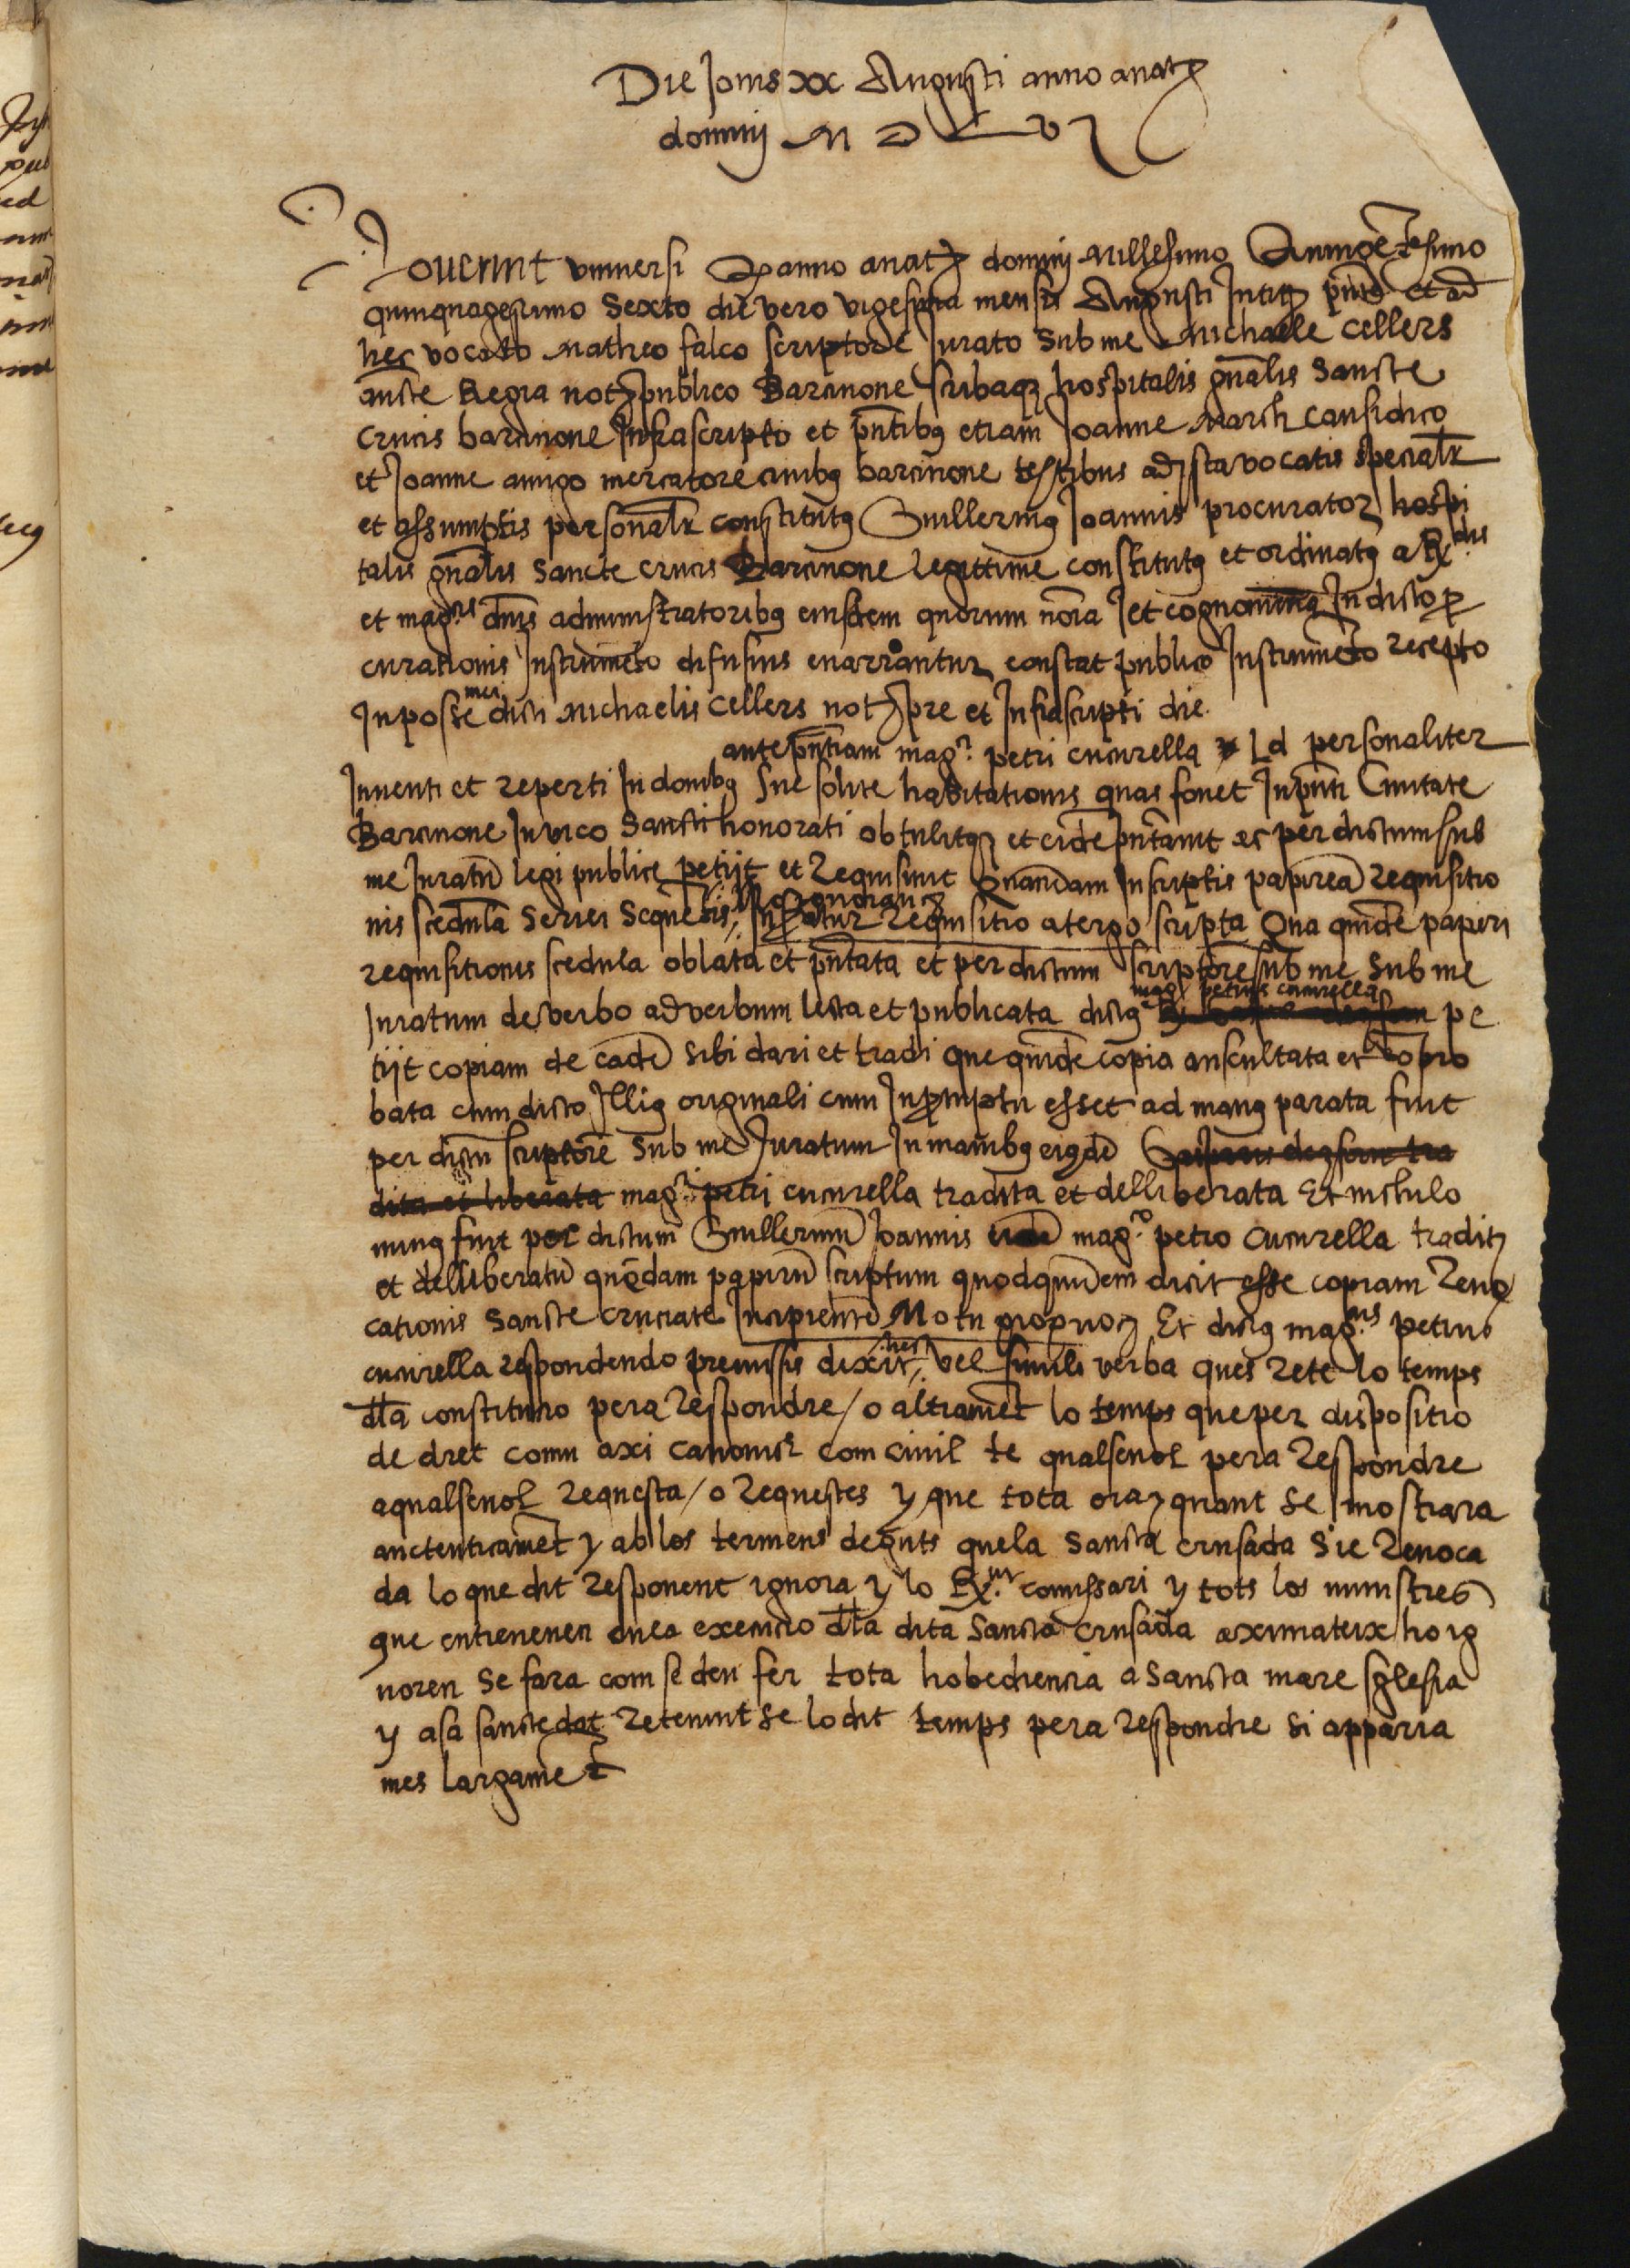 Die Jouis xx Augusti anno anatē
dominj M D L vj
Nouerint vniuersi Q anno anatē dominj Millesimo Quingētesimo
quinquagesimo Sexto die vero vigesima mensis Augusti Intitᵒ pnte et ad
hec vocato Matheo falco scriptore Jurato Sub me Michaele Cellers
aucte Regia notᵒ publico Barcinone scribaqʒ hospitalis gnalis Sancte
Crucis barcinone Infrascripto et pntibꝯ etiam Joanne March causidico
et Joanne amigo mercatore ciuibꝯ barcinone testibus ad ista vocatis specialr
et assumptis personalr constitutꝯ Guillermꝯ Joannis procurator hospi
talis gnalis Sancte crucis Barcinone legittime constitutꝯ et ordinatꝯ a Rᵈⁱˢ
et magᶜⁱˢ dnis administratoribꝯ eiusdem quorum noia et cognomina In dicto p
curationis Instrumēto difusius enarrantur constat publico Instrumēto recepto
In posse mei dicti Michaelis Cellers notᵒ pre et Infrascripti die
ante pntiam magᶜⁱ petri cucurella Ld personaliter
Inuenti et reperti In domibꝯ sue solite habitationis quas fouet In pnti Ciuitate
Barcinone In vico Sancti honorati obtulitqʒ et eidē pntauit ac per dictum sub
me Juratū legi publice petijt et Requisiuit Quandam In scriptis papireā requisitio
nis scedulā Seriei Sequētis / No ignorauʒ Inseratur requisitio a tergo scripta Qua quidē papiri
requisitionis scedula oblata et pntata et per dictum scriptorē sub me Sub me
Juratum de verbo ad verbum lecta et publicata dictꝯ magᶜˢ petrus cucurella pe
tijt copiam de eadē Sibi dari et tradi que quidē copia auscultata et cōpro
bata cum dicto Illiꝯ originali cum In promptu esset ad manꝯ parata fuit
per dictū scriptorē Sub me Juratum In manibꝯ eiꝯdē
dita et liberata magᶜⁱ petri cucurella tradita et delliberata Et nichilo
minꝯ fuit per dictum Guillermū Joannis eidē magᶜᵒ petro Cucurella traditū
et delliberatū quoddam papirū scriptum quodquidem dicit esse copiam reuo
cationis Sancte cruciate Incipientē Motu proprioʒ Et dictꝯ magᶜᵘˢ petrus
cucurella respondendo premissis dixit hec / vel simili verba ques rete lo temps
dla constitutio pera respondre / o altramēt lo temps que per dispositio
de dret comu axi canonich com ciuil te qualseuol pera respondre
a qualseuol requesta / o requestes y que tota oraʒ quant se mostrara
auctenticamēt y ab los termens deguts que la Sancta crusada Sie reuoca
da lo que dit responent ignora y lo Rᵐ comissari y tots los ministres
que entreuenen en la exemcio dla dita Sancta crusada axi mateix ho ig
noren Se fara com se deu fer tota hobediencia a Sancta mare sglesia
y a sa sanctedat retenint se lo dit temps pera respondre si apparra
mes largamēt